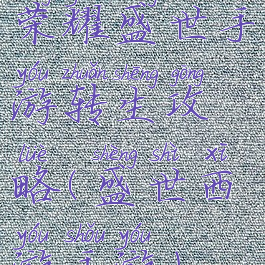 荣耀盛世手
yóu zhuǎn shēng gōng
游转生攻
lüè shèng shì xī
略(盛世西
yóu shǒu yóu